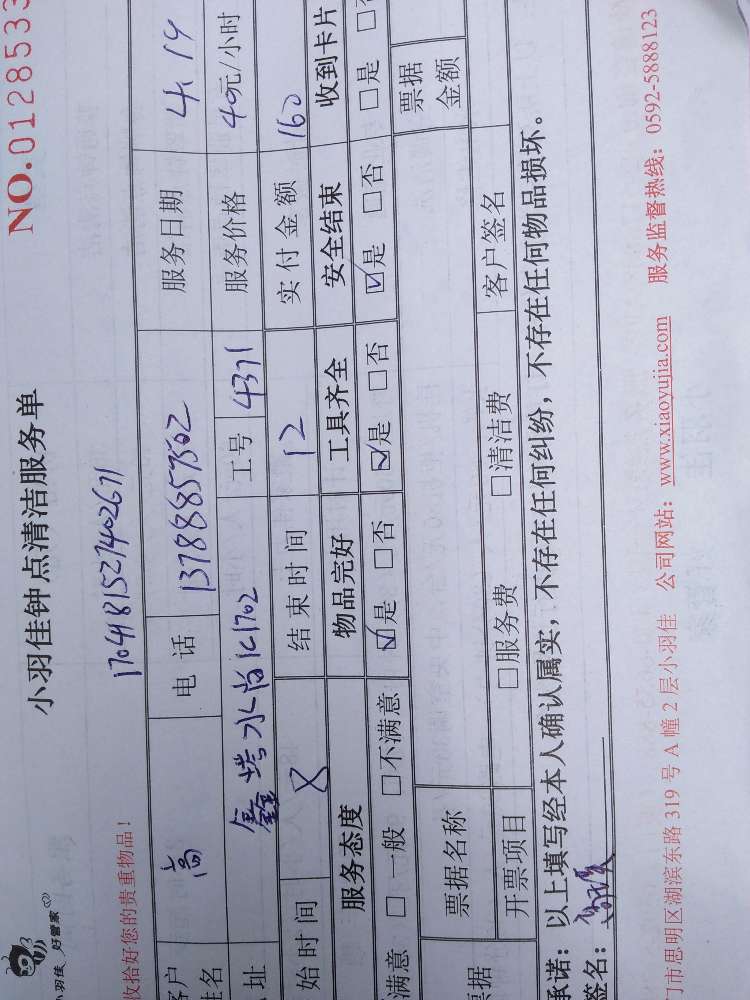 NO.0128533
小羽佳 好管家
小羽佳钟点清洁服务单
收拾好您的贵重物品！
客户姓名 高 电话 13788857502 服务日期 4.19
址 鑫塔水尚 1702 工号 4371 服务价格 40元/小时
始时间 8 结束时间 12 实付金额 160
服务态度 物品完好 工具齐全 安全结束 收到卡片
满意 □一般 □不满意 ☑是 □否 ☑是 □否 ☑是 □否 □是
票据名称 票据金额
票据 开票项目 □服务费 □清洁费 客户签名
承诺：以上填写经本人确认属实，不存在任何纠纷，不存在任何物品损坏。
签名：
门市思明区湖滨东路 319 号 A 幢 2 层小羽佳 公司网站：www.xiaoyujia.com 服务监督热线：0592-5888123